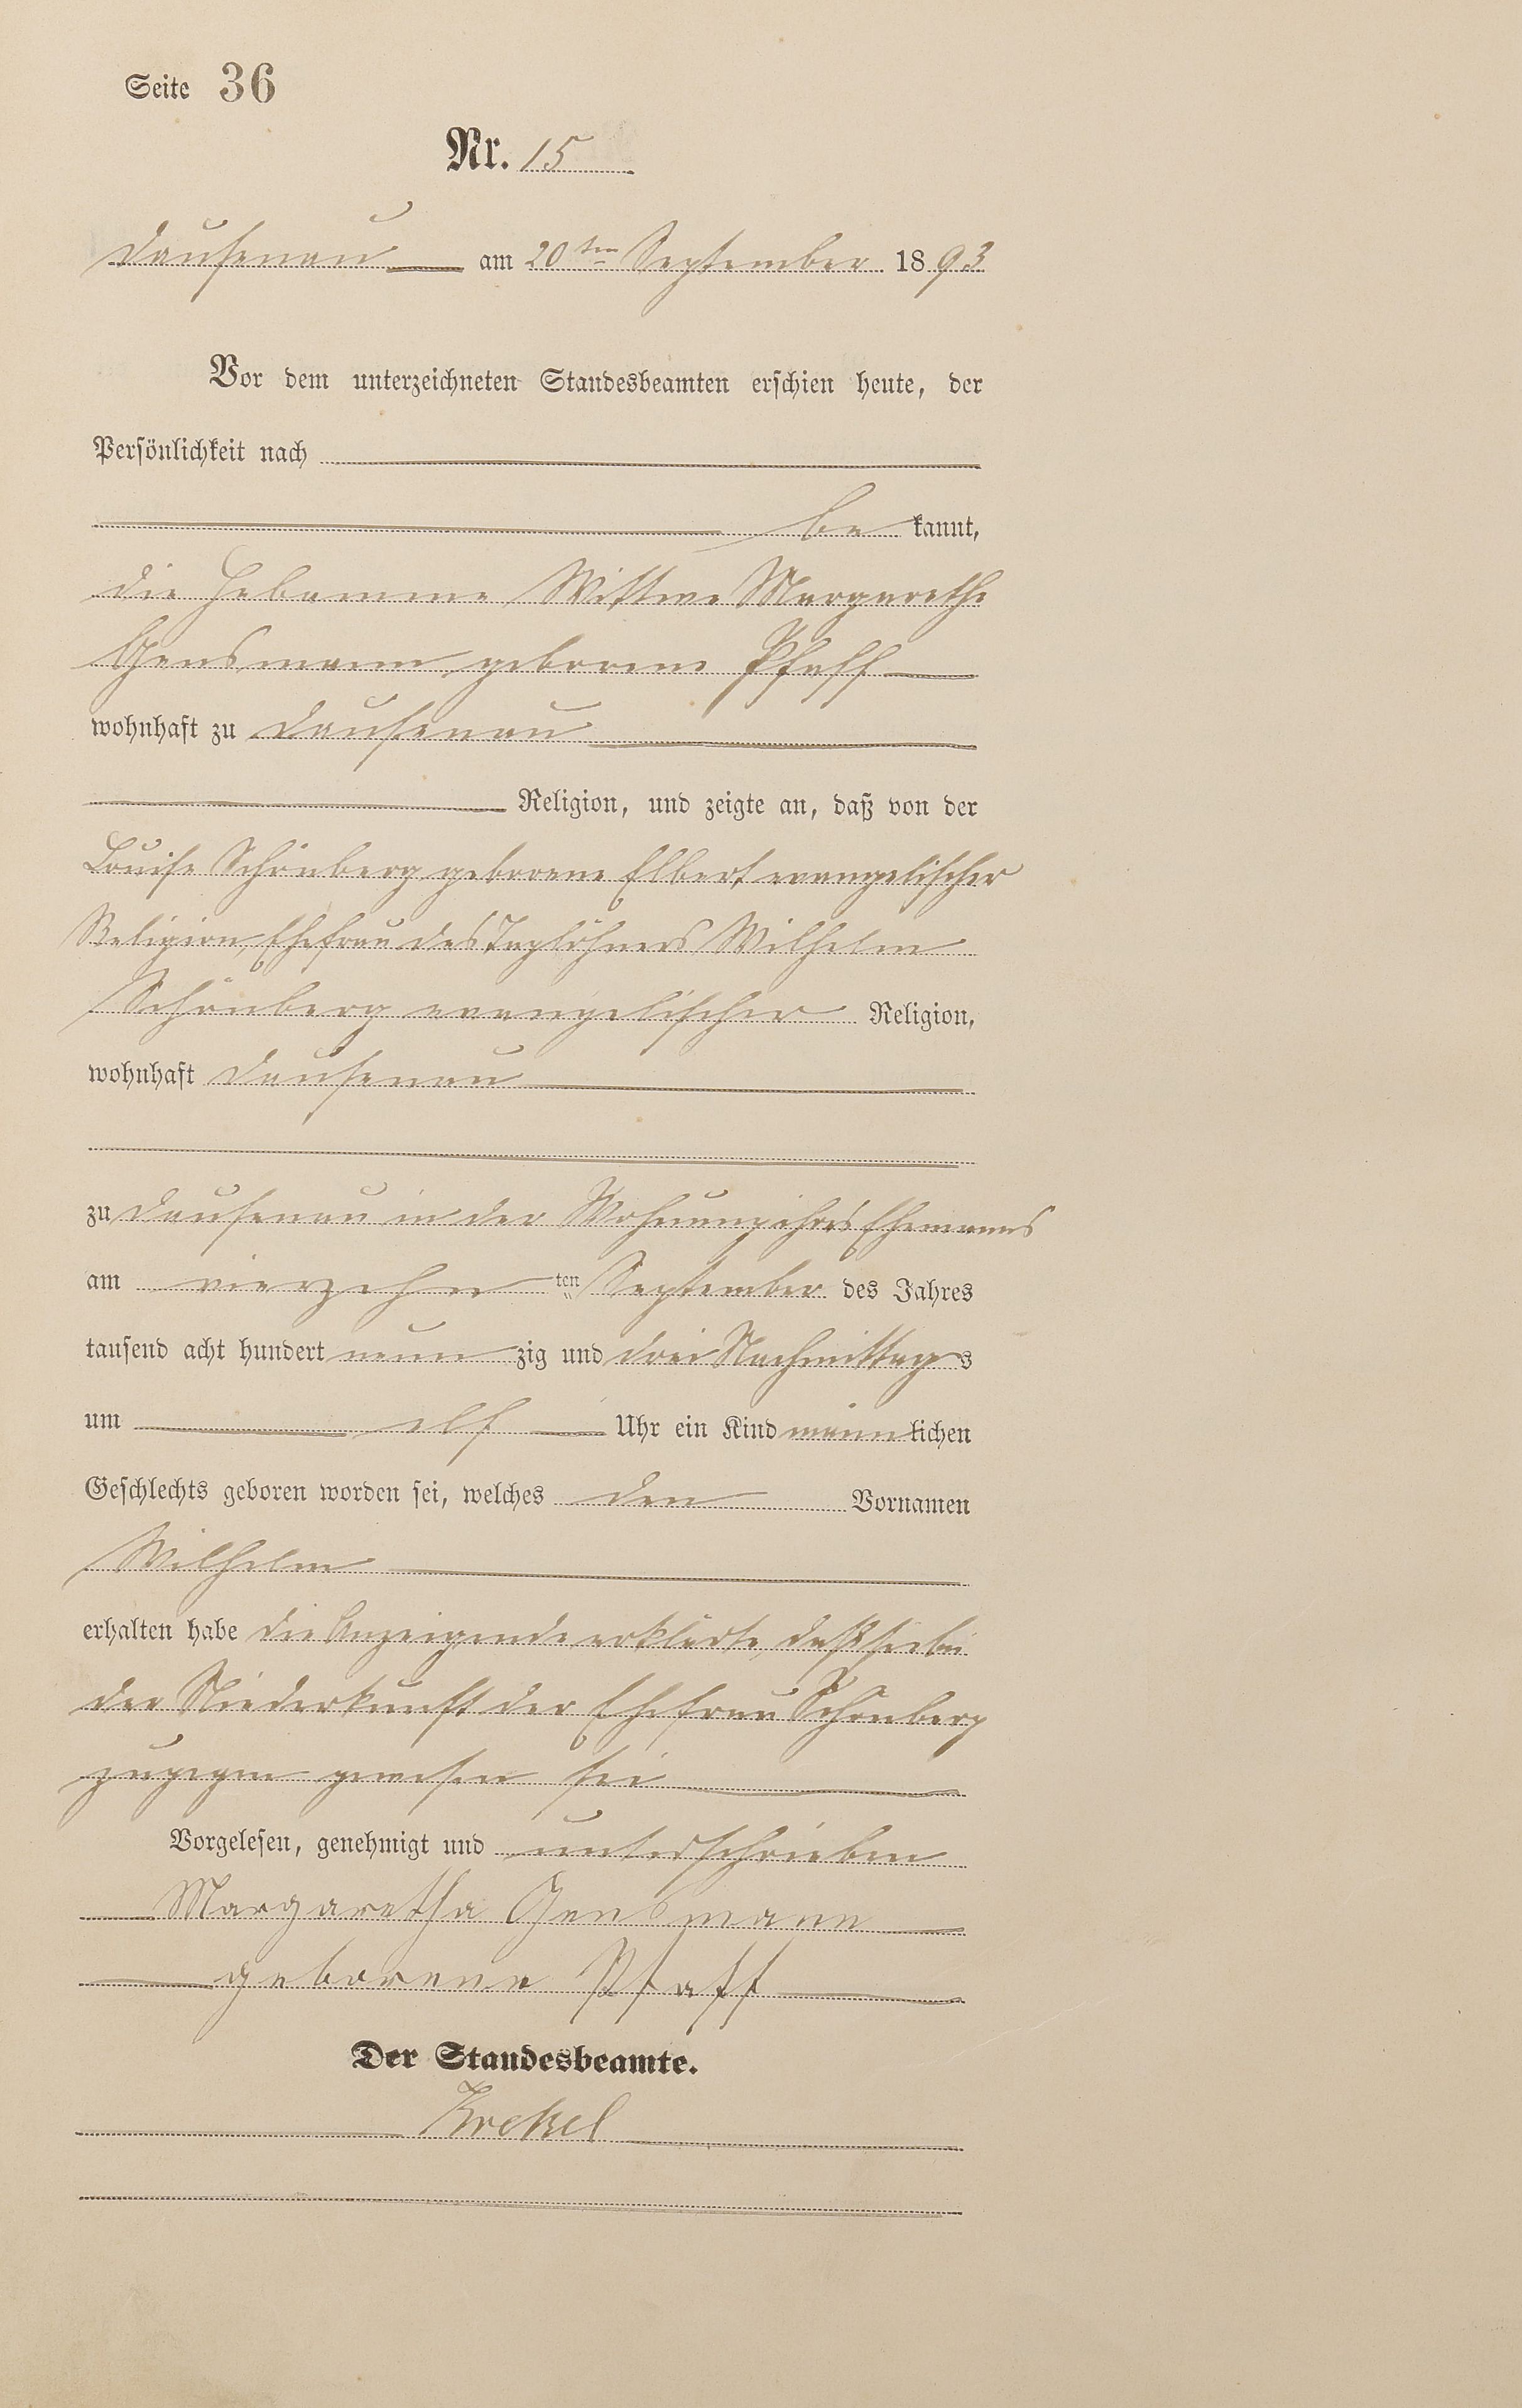 Seite 36
Nr. 15
Dausenau am 20ten September 1893
Vor dem unterzeichneten Standesbeamten erschien heute, der
Persönlichkeit nach
bekannt,
die Hebamme Wittwe Margarethe
Gensmann geborene Pfaff
wohnhaft zu Dausenau
Religion, und zeigte an, daß von der
Louise Schönberg geborene Elbert evangelischer
Religion, Ehefrau des Taglöhners Wilhelm
Schönberg evangelischer Religion,
wohnhaft Dausenau
zu Dausenau in der Wohnung ihres Ehemanns
am vierzehn ten September des Jahres
tausend acht hundert neunzig und drei Nachmittags
um elf Uhr ein Kind männlichen
Geschlechts geboren worden sei, welches den Vornamen
Wilhelm
erhalten habe die Anzeigende erklärte, daß sie bei
der Niederkunft der Ehefrau Schönberg
zugegen gewesen sei
Vorgelesen, genehmigt und unterschrieben
Margaretha Gensmann
geborene Pfaff
Der Standesbeamte.
Krekel